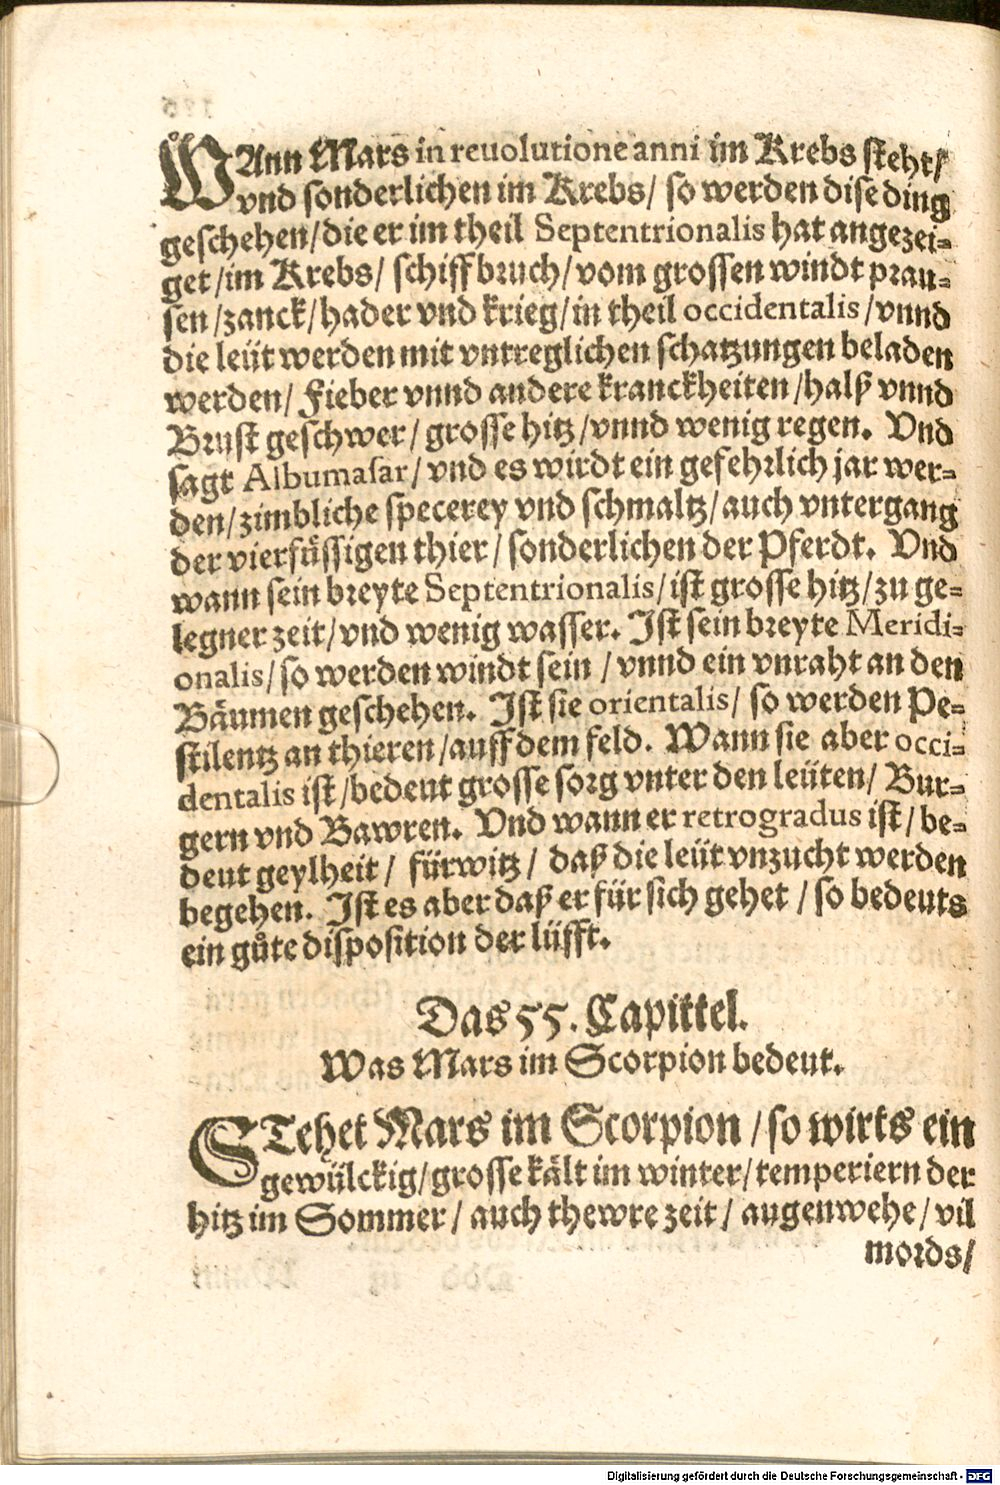 WAnn Mars in reuolutione anni im Krebs steht/
vnd sonderlichen im Krebs/ so werden dise ding
geschehen/die er im theil Septentrionalis hat angezei-
get/im Krebs/ schiffbruch/vom grossen windt prau-
sen/zanck/hader vnd krieg/in theil occidentalis/vnnd
die leüt werden mit vntreglichen schatzungen beladen
werden/ Fieber vnnd andere kranckheiten/halß vnnd
Brust geschwer/ grosse hitz/vnnd wenig regen. Vnd
sagt Albumasar/ vnd es wirdt ein gefehrlich jar wer-
den/zimbliche specerey vnd schmaltz/auch vntergang
der vierfüssigen thier/ sonderlichen der Pferdt. Vnd
wann sein breyte Septentrionalis/ist grosse hitz/zu ge-
legner zeit/vnd wenig wasser. Ist sein breyte Meridi-
onalis/so werden windt sein / vnnd ein vnraht an den
Bäumen geschehen. Ist sie orientalis/ so werden Pe-
stilentz an thieren/auff dem feld. Wann sie aber occi-
dentalis ist/bedeut grosse sorg vnter den leüten/ Bur-
gern vnd Bawren. Vnd wann er retrogradus ist/be-
deut geylheit/ fürwitz/ daß die leüt vnzucht werden
begehen. Ist es aber daß er für sich gehet /so bedeuts
ein gůte disposition der lüfft.
Das 55. Capittel.
Was Mars im Scorpion bedeut.
STehet Mars im Scorpion /so wirts ein
gewülckig/grosse kält im winter/temperiern der
hitz im Sommer/ auch thewre zeit/ augenwehe/vil
mords/
Digitalisierung gefördert durch die Deutsche Forschungsgemeinschaft - DFG